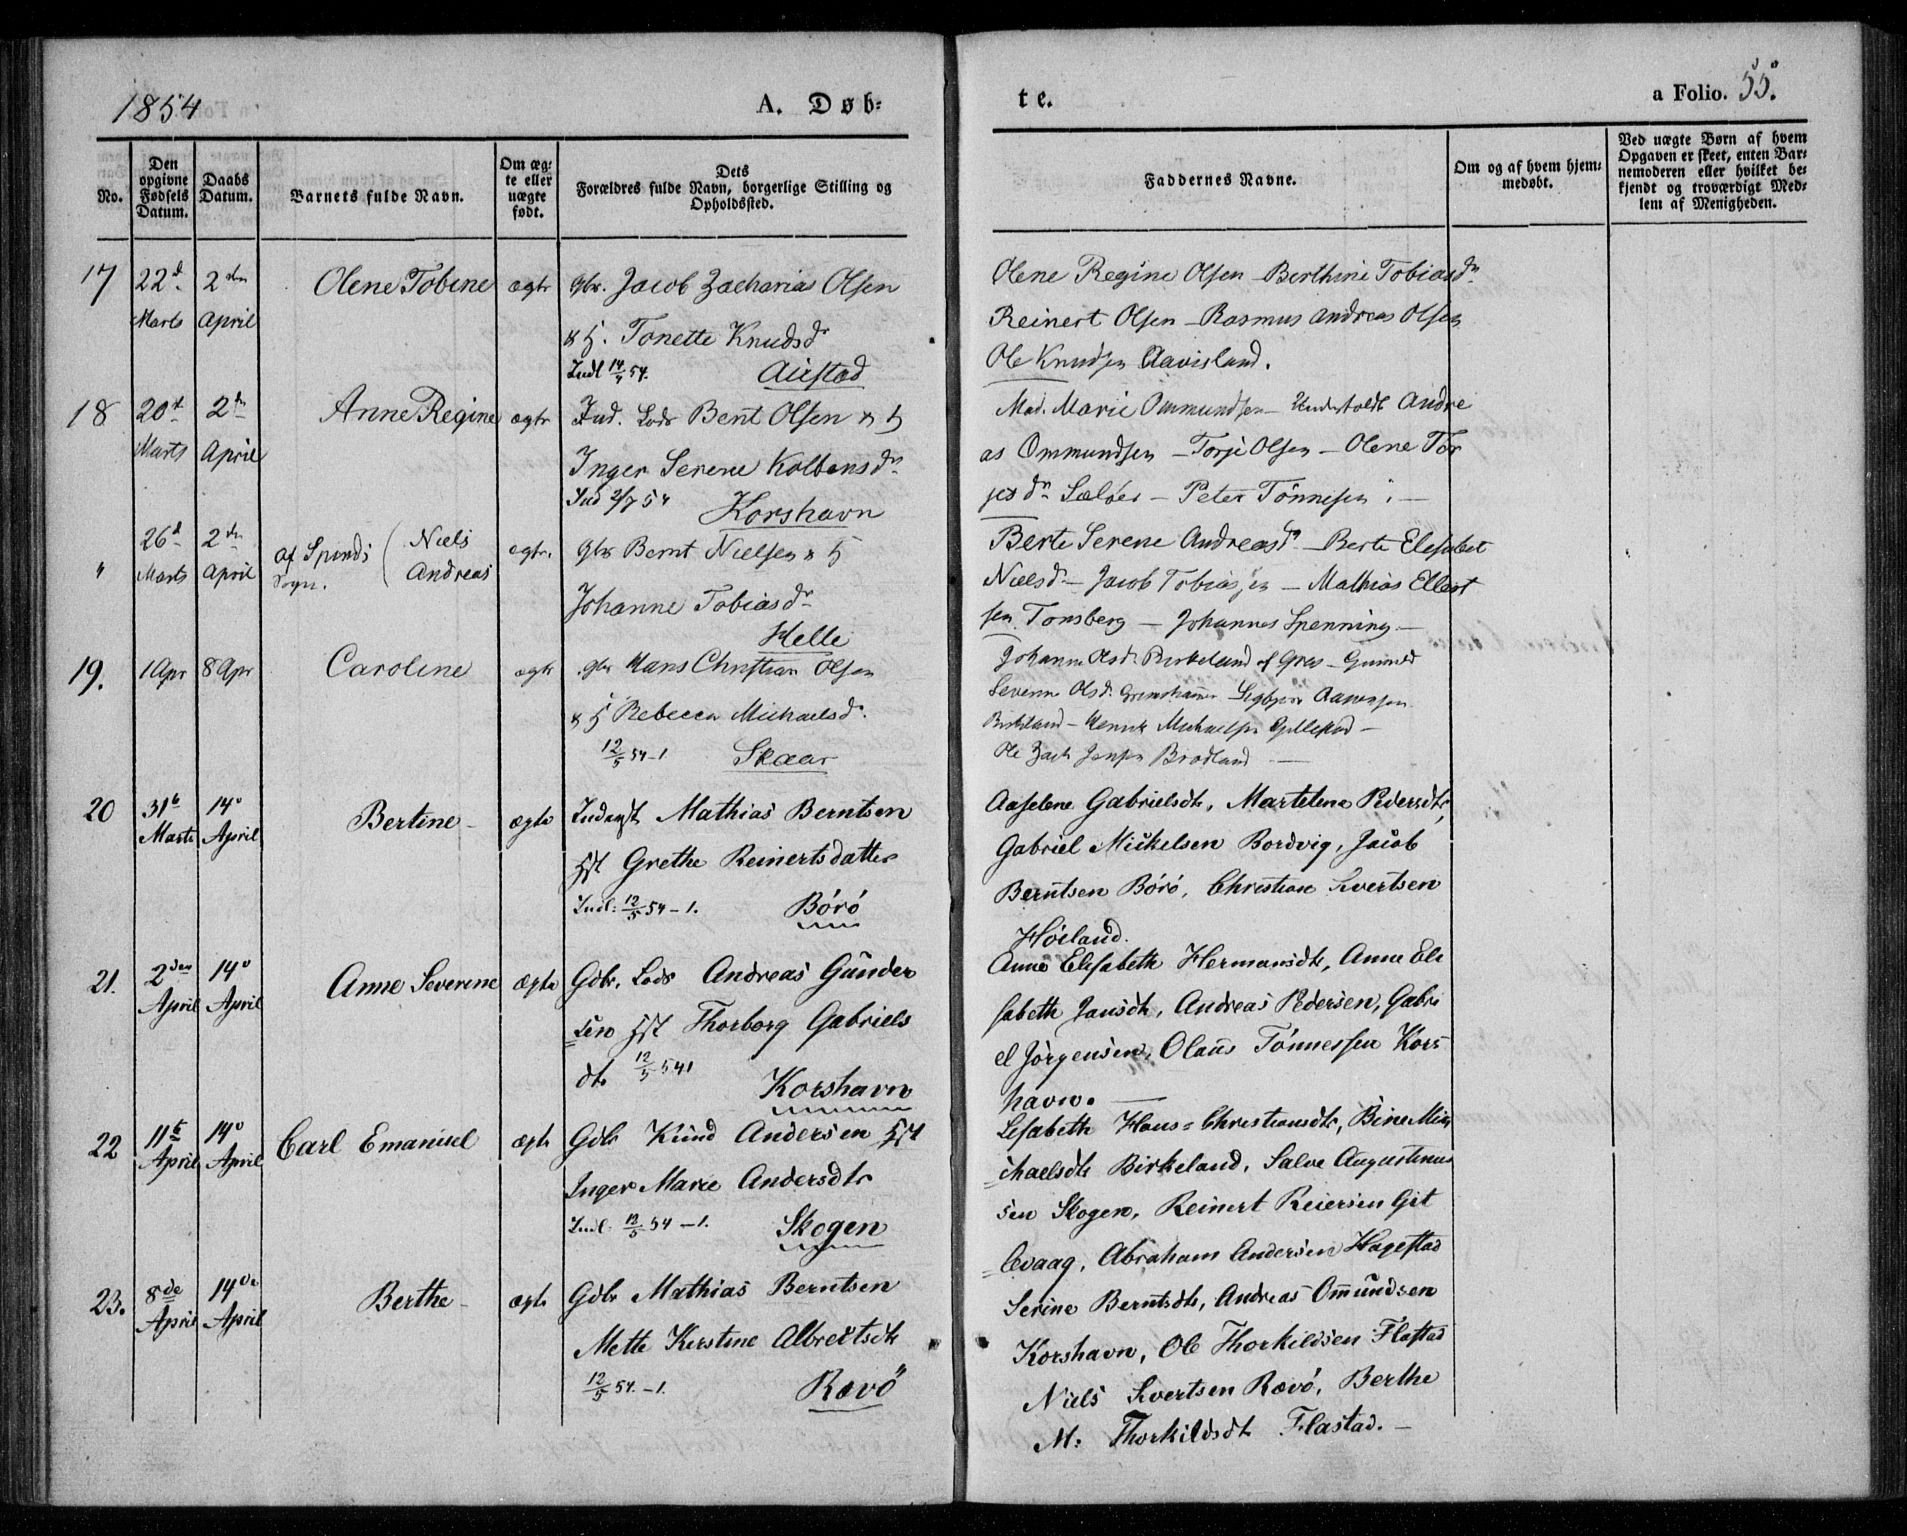 1854
A. Døb-
te.
a Folio. 55.
No.
Den opgivne Fødsels Datum.
Daabs Datum.
Barnets fulde Navn.
Om ægte eller uægte født.
Dets Forældres fulde Navn, borgerlige Stilling og Opholdssted.
Faddernes Navne.
Om og af hvem hjemmedøbt.
Ved uægte Børn af hvem Opgaven er skeet, enten Barnemoderen eller hvilket bekjendt og troværdigt Medlem af Menigheden.
17 22d Marts 2den April Olene Tobine ægte Gbr. Jacob Zacharias Olsen
& H. Tonette Knudsdr
Indl 14/4 54. Austad
Olene Regine Olsen - Berthine Tobiasdr
Reinert Olsen - Rasmus Andreas Olsen
Ole Knudsen Aavisland.
18 20d Marts 2den April Anne Regine ægte Ind. Lods Bent Olsen & H
Inger Serene Kolbensdr
Ind 2/7 54 Korshavn
Mad. Marie Ommundsen - Andre
as Ommundsen - Torje Olsen - Olene Tor
jesdr Sæløer - Peter Tönnesen
" 26d Marts 2den April af Spinds Sogn. (Niels Andreas ægte. Gbr Bernt Nielsen & H
Johanne Tobiasdr
Helle
Berte Serene Andreasdr - Berte Elesabet
Nielsdr - Jacob Tobiasen - Mathias Ellert
sen Tonsberg - Johannes Spenning -
19. 1 Apr 8 Apr Caroline ægte Gbr Hans Christian Olsen
& H Rebecca Michaelsdr.
12/5 54-1 Skaar
Johanne Olsd. Birkeland af Gres - Gunild
Severine Olsd. Grimshammer Sigbjørn Aanensen
Birkeland - Henrik Michaelsen Gyllestad -
Ole Zach Jensen Brodland
20 31te Marts 14o April Bertine - ægte Inderst Mathias Berntsen
Hst Grethe Reinertsdatter
Indl: 12/5 54-1. Börö
Aaselene Gabrielsdtr, Martelene Pedersdtr,
Gabriel Mickelsen Bordvig, Jacob
Berntsen Börö, Christian Sivertsen
Höiland.
21. 2den April 14o April Anne Severene ægte Gdbr. Lods Andreas Gunder
sen Hst Thorborg Gabriels
dtr 12/5 54 1 Korshavn
Anne Elisabeth Hermansdtr, Anne Eli
sabeth Jansdtr, Andreas Pedersen, Gabri
el Jörgensen, Olaus Tönnessen Kors-
havn.
22 11te April 14o April Carl Emanuel ægte Gdbr Knud Andersen Hst
Inger Marie Andersdtr
Indl. 12/5 54-1. Skogen
Lisabeth Hans=Christiansdtr, Bine Mi
chaelsdtr Birkeland, Salve Augustinus
sen Skogen, Reinert Reiersen Git
levaag, Abraham Andersen Hagestad
23. 8de April 14de April Berthe - ægte Gdbr Mathias Berntsen
Mette Kirstine Albretsdtr
12/5 54.-1. Rævö
Serine Berntsdtr, Andreas Ommundsen
Korshavn, Ole Thorkildsen Flastad
Niels Sivertsen Rævö, Berthe
M: Thorkildsdtr Flastad. -